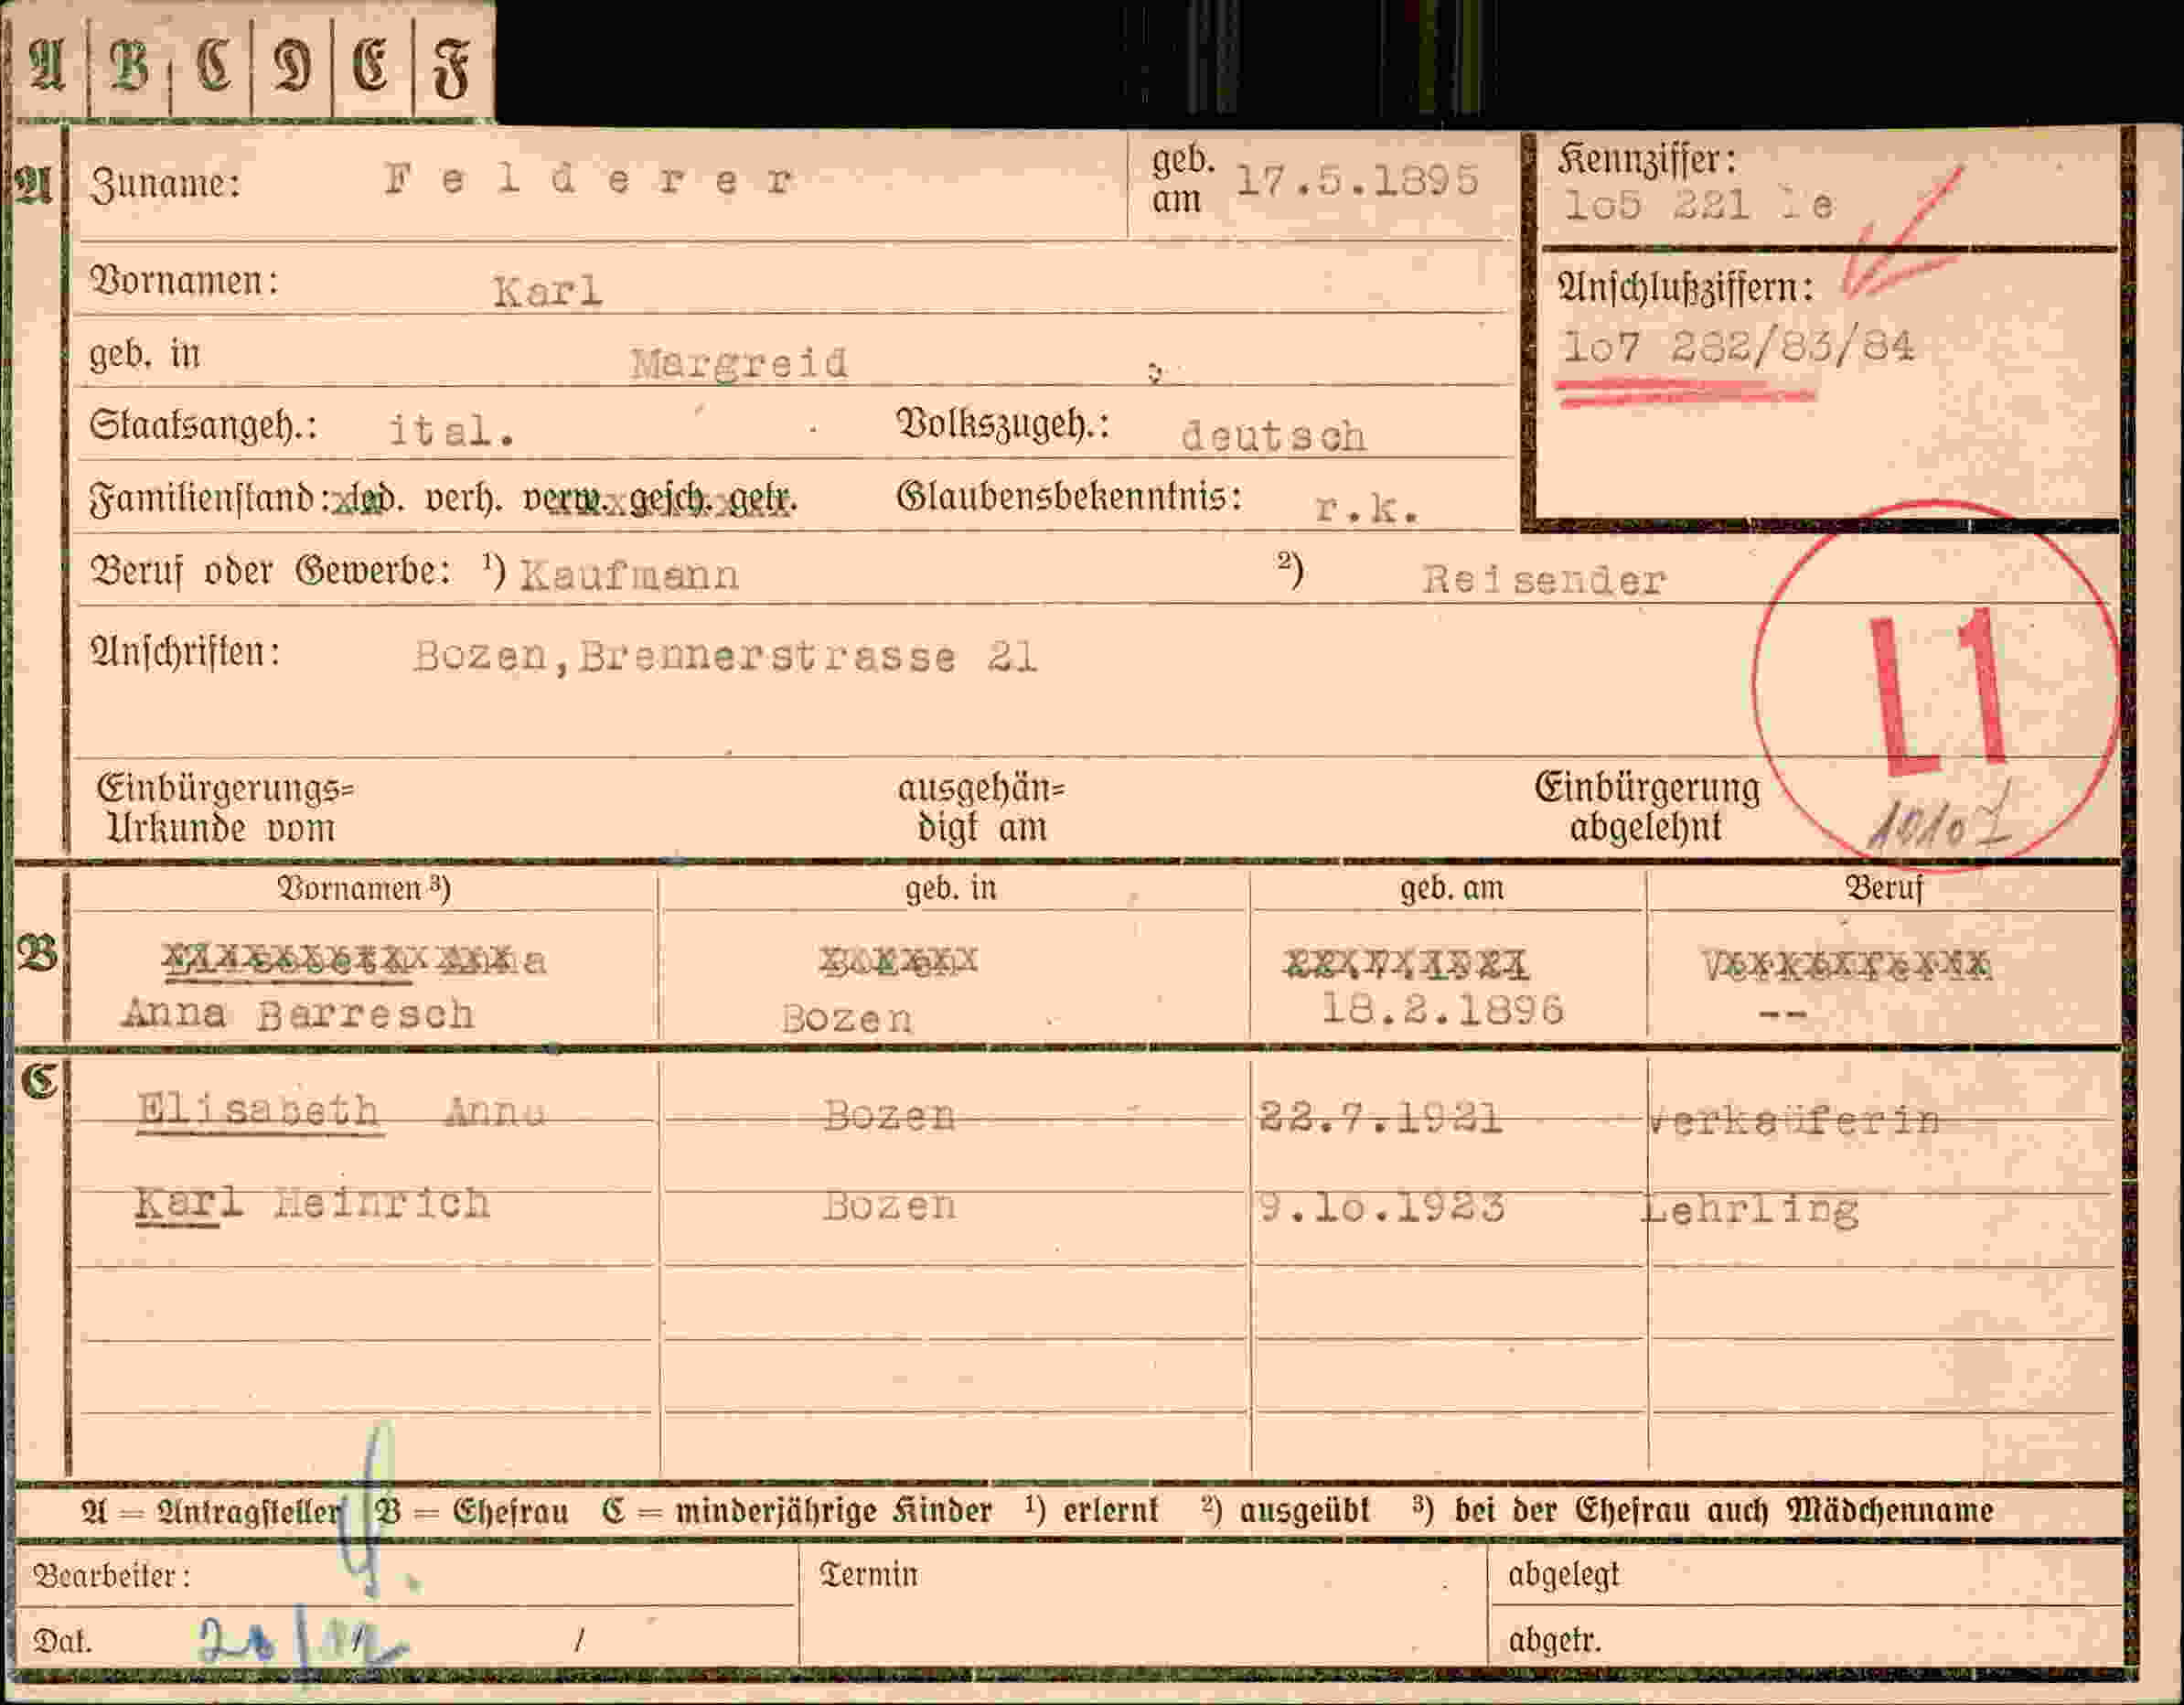 A B C D E F
A Zuname: Felderer geb. am 17.5.1895
Kennziffer:
lo5 221 le
Vornamen: Karl
Anschlußziffern:
lo7 282/83/84
geb. in Margreid
Staatsangeh.: ital. Volkszugeh.: deutsch
Familienstand: led. verh. verw. gesch. getr. Glaubensbekenntnis: r.k.
Beruf oder Gewerbe: ¹) Kaufmann ²) Reisender
Anschriften: Bozen,Brennerstrasse 21
L1
Einbürgerungs= Urkunde vom ausgehän= digt am Einbürgerung abgelehnt
Vornamen ³) geb. in geb. am Beruf
B
Anna Barresch Bozen 18.2.1896 --
C
Elisabeth Anna Bozen 22.7.1921 Verkäuferin
Karl Heinrich Bozen 9.lo.1923 Lehrling
A = Antragsteller B = Ehefrau C = minderjährige Kinder ¹) erlernt ²) ausgeübt ³) bei der Ehefrau auch Mädchenname
Bearbeiter: Termin abgelegt
Dat. / abgetr.